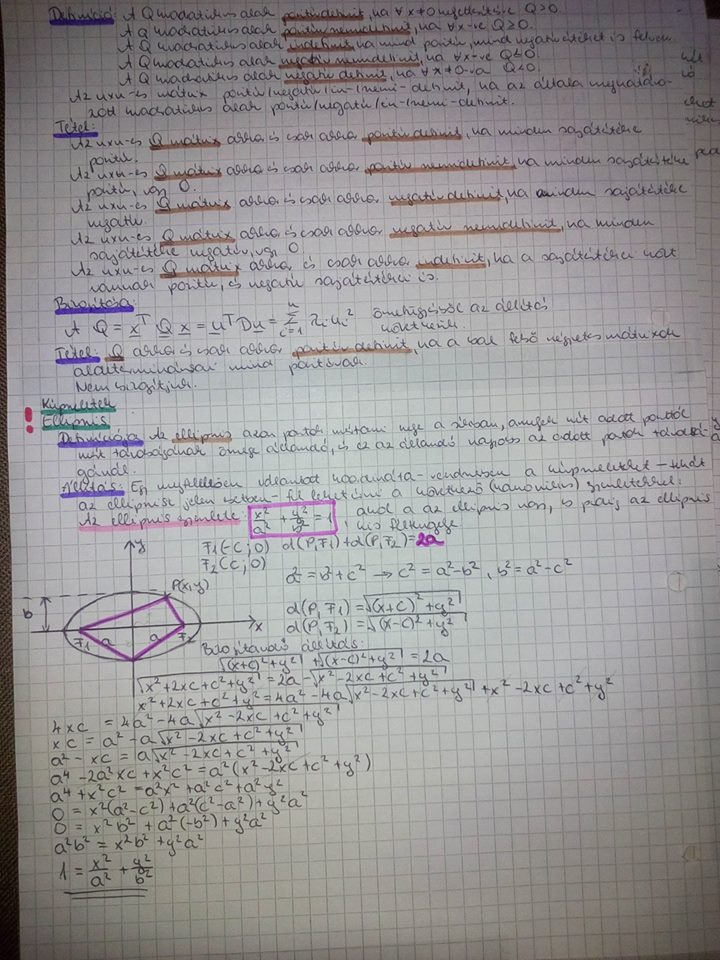 Definíció: A Q kvadratikus alak pozitív definit, ha ∀ x≠0 esetén Q>0.
A Q kvadratikus alak pozitív semidefinit, ha ∀x-re Q≥0.
A Q kvadratikus alak indefinit, ha mind pozitív, mind negatív értéket is felvesz.
A Q kvadratikus alak negatív semidefinit, ha ∀x-re Q≤0
A Q kvadratikus alak negatív definit, ha ∀x≠0-ra Q<0.
Az nxn-es mátrix pozitív/negatív/in-/semi-definit, ha az általa meghatáro-
zott kvadratikus alak pozitív/negatív/in-/semi-definit.
Tétel:
Az nxn-es Q mátrix akkor és csak akkor pozitív definit, ha minden sajátértéke
pozitív.
Az nxn-es Q mátrix akkor és csak akkor pozitív semidefinit, ha minden sajátértéke
pozitív, vagy 0.
Az nxn-es Q mátrix akkor és csak akkor negatív definit, ha minden sajátértéke
negatív.
Az nxn-es Q mátrix akkor és csak akkor negatív semidefinit, ha minden
sajátértéke negatív, vagy 0
Az nxn-es Q mátrix akkor és csak akkor indefinit, ha a sajátértékei közt
vannak pozitív, és negatív sajátértékei is.
Bizonyítása:
A Q = x^T Q x = u^T D u = Σ_{i=1}^{n} λi ui² összefüggésből az állítás
következik.
Tétel: Q akkor és csak akkor pozitív definit, ha a bal felső négyzetes mátrixok
aldeterminánsai mind pozitívak.
Nem bizonyítjuk.
! Kúpszeletek
Ellipszis
Definíciója: Az ellipszis azon pontok mértani helye a síkban, amelyek két adott ponttól
mért távolságának összege állandó, és ez az állandó nagyobb az adott pontok távolsá-
gánál.
Állítás: Egy megfelelően választott koordináta-rendszerben a kúpszeleteket – tehát
az ellipszist jelen esetben – fel lehet írni a következő (kanonikus) egyenlettel:
Az ellipszis egyenlete: x²/a² + y²/b² = 1 ahol a az ellipszis nagy, b pedig az ellipszis
kis féltengelye
F1(-c;0) d(P,F1)+d(P,F2)=2a
F2(c;0)
a²=b²+c² → c²=a²-b², b²=a²-c²
y
P(x,y)
b
x
F1
a
a
F2
d(P,F1)=√((x+c)²+y²)
d(P,F2)=√((x-c)²+y²)
Bizonyítandó állítás:
√((x+c)²+y²) + √((x-c)²+y²) = 2a
√(x²+2xc+c²+y²) = 2a-√(x²-2xc+c²+y²)
x²+2xc+c²+y² = 4a²-4a√(x²-2xc+c²+y²) + x²-2xc+c²+y²
4xc = 4a²-4a√(x²-2xc+c²+y²)
xc = a²-a√(x²-2xc+c²+y²)
a²-xc = a√(x²-2xc+c²+y²)
a⁴-2a²xc+x²c² = a²(x²-2xc+c²+y²)
a⁴+x²c² = a²x²+a²c²+a²y²
0 = x²(a²-c²)+a²(c²-a²)+y²a²
0 = x²b² + a²(-b²)+y²a²
a²b² = x²b²+y²a²
1 = x²/a² + y²/b²